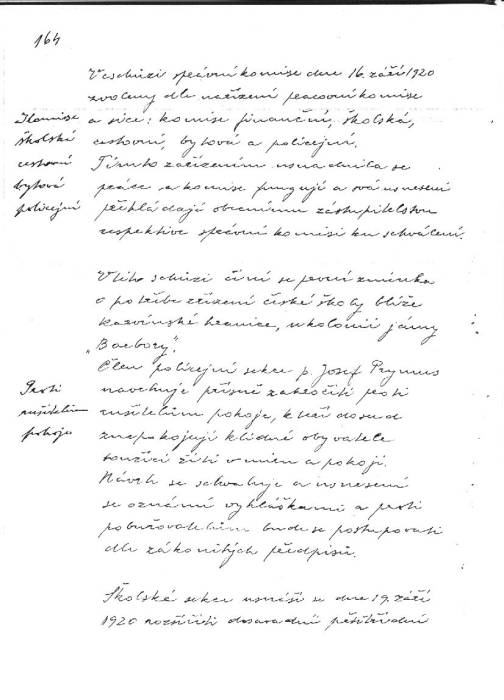 164
V schůzi správní komise dne 16. září 1920
zvoleny dle nařízení pracovní komise
Komise
a sice: komise finanční, školská,
školská
cestovní, bytová a policejní.
cestovní
Tímto zařízením usnadnila se
bytová
práce a komise fungují a svá usnesení
policejní
předkládají obecnímu zastupitelstvu
respektive správní komisi ku schválení.
V této schůzi činí se první zmínka
o potřebě zřízení české školy blíže
karvínské hranice, u kolonií jámy
"Barbory".
Člen policejní sekce p. Josef Prymus
Proti
navrhuje přísně zakročiti proti
rušitelům
rušitelům pokoje, kteří dosud
pokoje
znepokojují klidné obyvatele
toužící žíti v míru a pokoji.
Návrh se schvaluje a usnesení
se oznámí vyhláškami a proti
pobuřovatelům bude se postupovati
dle zákonitých předpisů.
Školská sekce usnáší se dne 19. září
1920 rozšířiti dosavadní pětitřídní